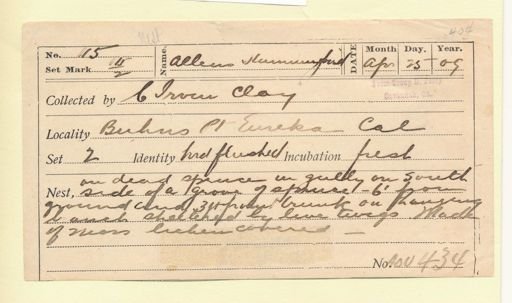 No. 15
Set Mark 15/2
Name. Allens Hummingbird
DATE
Month Day. Year.
Apr 25 - 09
Collected by C Irvin Clay
Locality Buhns Pt Eureka Cal
Set 2 Identity bird flushed Incubation fresh
on dead spruce in gully on south
Nest, side of a grove of spruce 6' from
ground and 3 ft from trunk on hanging
branch sheltered by live twigs Made
of moss lichen covered —
No. 434